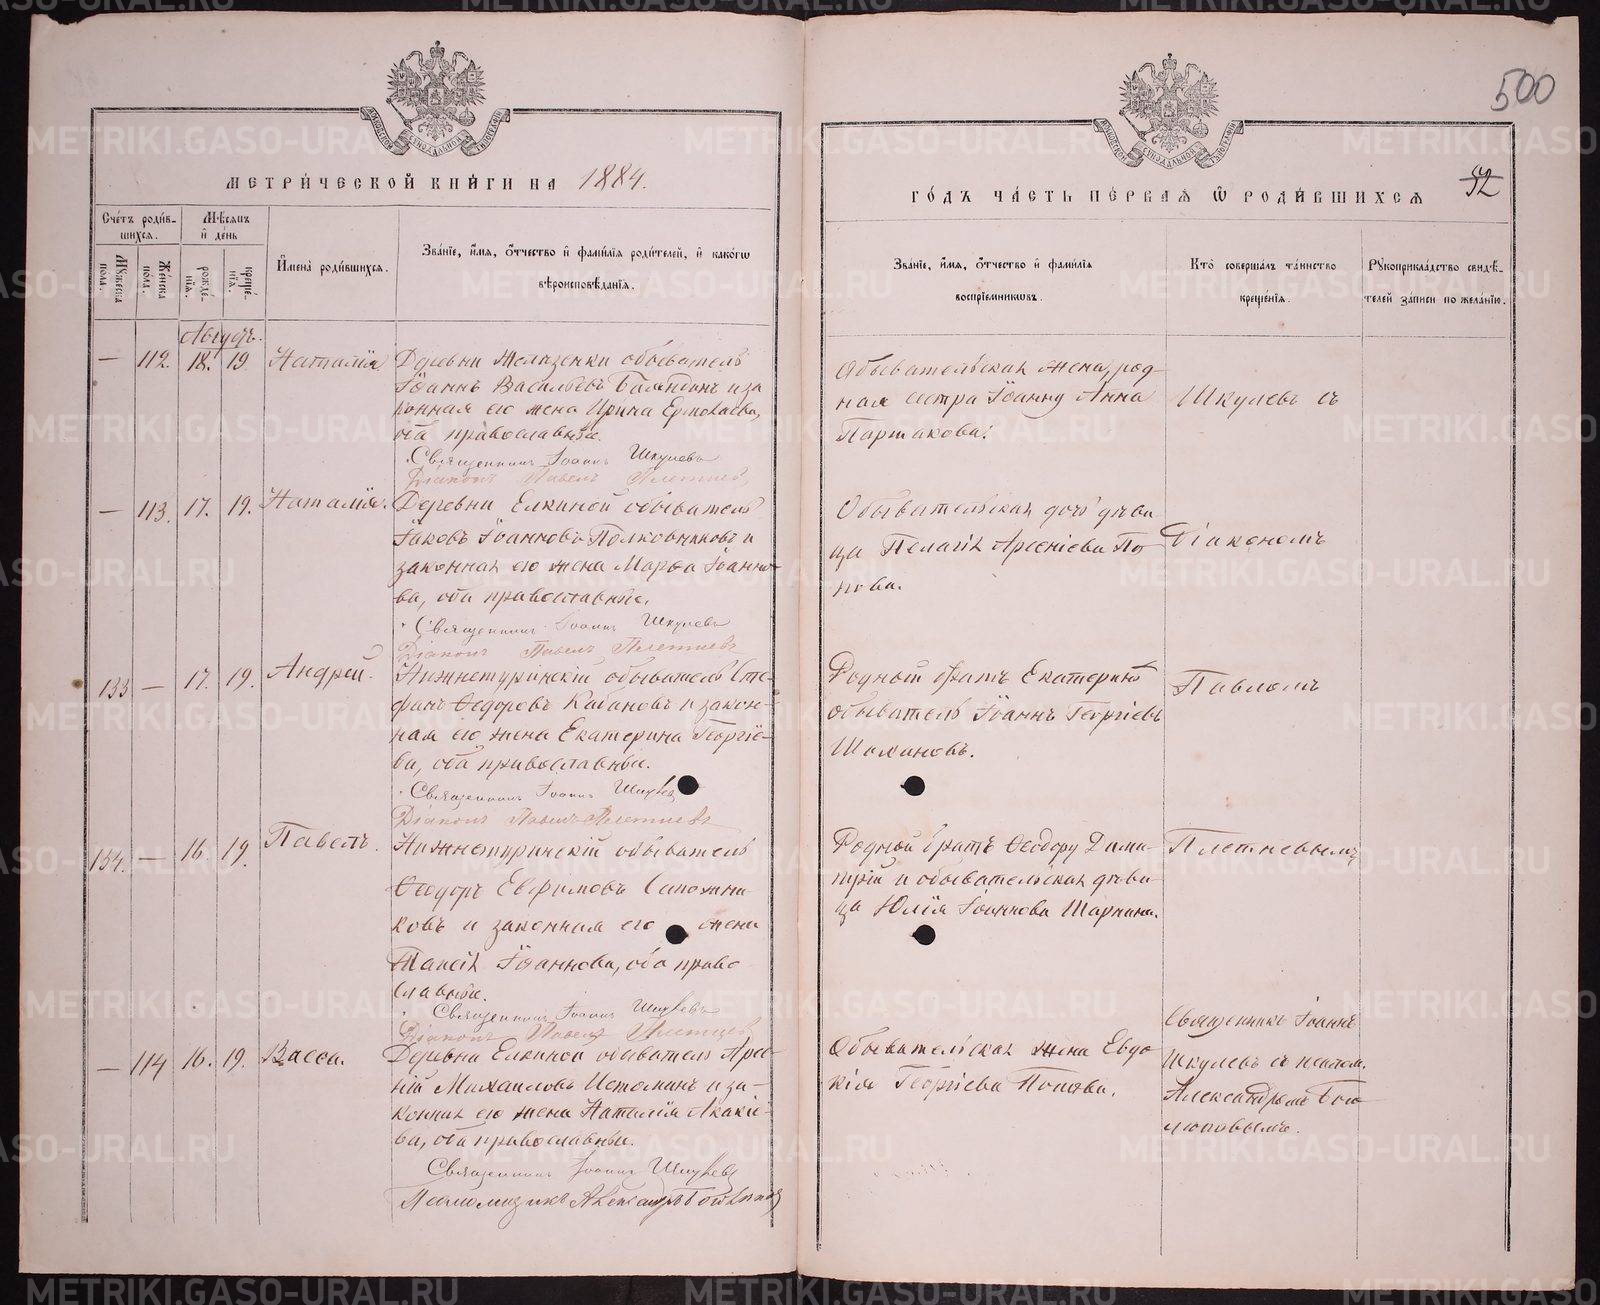 500
МЕТРИ́ЧЕСКОЙ КНИ́ГИ НА 1884.
ГО́ДЪ ЧА́СТЬ ПЕ́РВАЯ Ѿ РОДИ́ВШИХСЯ
92
Сче́тъ роди́в-
шихся.
Мѣ́сяцъ
и҆ де́нь
Мꙋ́жеска
по́ла.
Же́нска
по́ла.
рожде́-
нїя.
креще́-
нїя.
И҆мена̀ роди́вшихся.
Зва́нїе, и҆́мя, ѻ҆́тчество и҆ фами́лїя роди́телей, и҆ како́гѡ
вѣроисповѣ́данїя.
Зва́нїе, и҆́мя, ѻ҆́тчество и҆ фами́лїя
воспрїе́мникѡвъ.
Кто̀ соверша́лъ та́инство
креще́нїя.
Рꙋкоприкла́дство свидѣ́-
телей за́писи по жела́нїю.
Августъ.
— 112. 18. 19 Наталія
Деревни Желѣзенки обыватель
Іоаннъ Васильевъ Баландинъ и за
конная его жена Ирина Ермолаева,
оба православные.
Священникъ Іоаннъ Шкулевъ
Діаконъ Павелъ Плетневъ
Обывательская жена, род-
ная сестра Іоанну Анна
Партакова.
Шкулевъ съ
— 113. 17. 19. Наталія.
Деревни Елкиной обыватель
Іаковъ Іоанновъ Полковниковъ и
законная его жена Марѳа Іоанно-
ва, оба православные.
Священникъ Іоаннъ Шкулевъ
Діаконъ Павелъ Плетневъ
Обывательская дочь дѣви
ца Пелагія Арсеніева По
пова.
Діакономъ
133 — 17. 19. Андрей.
Нижнетуринскій обыватель Сте-
фанъ Ѳедоровъ Кабановъ и закон-
ная его жена Екатерина Георгіе-
ва, оба православные.
Священникъ Іоаннъ Шкулевъ
Діаконъ Павелъ Плетневъ
Родной братъ Екатерины
обыватель Іоаннъ Георгіевъ
Шамановъ.
Павломъ
134. — 16. 19. Павелъ.
Нижнетуринскій обыватель
Ѳеодоръ Евфимовъ Сапожни-
ковъ и законная его жена
Таисія Іоаннова, оба право
славные.
Священникъ Іоаннъ Шкулевъ
Діаконъ Павелъ Плетневъ
Родной братъ Ѳеодору Дими-
трій и обывательская дѣви-
ца Юлія Іоаннова Шарнина.
Плетневымъ
— 114 16. 19. Васса.
Деревни Елкиной обыватель Арсе-
ній Михаиловъ Истоминъ и за-
конная его жена Наталія Акакіе-
ва, оба православные.
Священникъ Іоаннъ Шкулевъ
Псаломщикъ Александръ
Обывательская жена Евдо
кія Георгіева Попова.
Священникъ Іоаннъ
Шкулевъ съ псалом.
Александромъ Бого
люповымъ.
METRIKI.GASO-URAL.RU